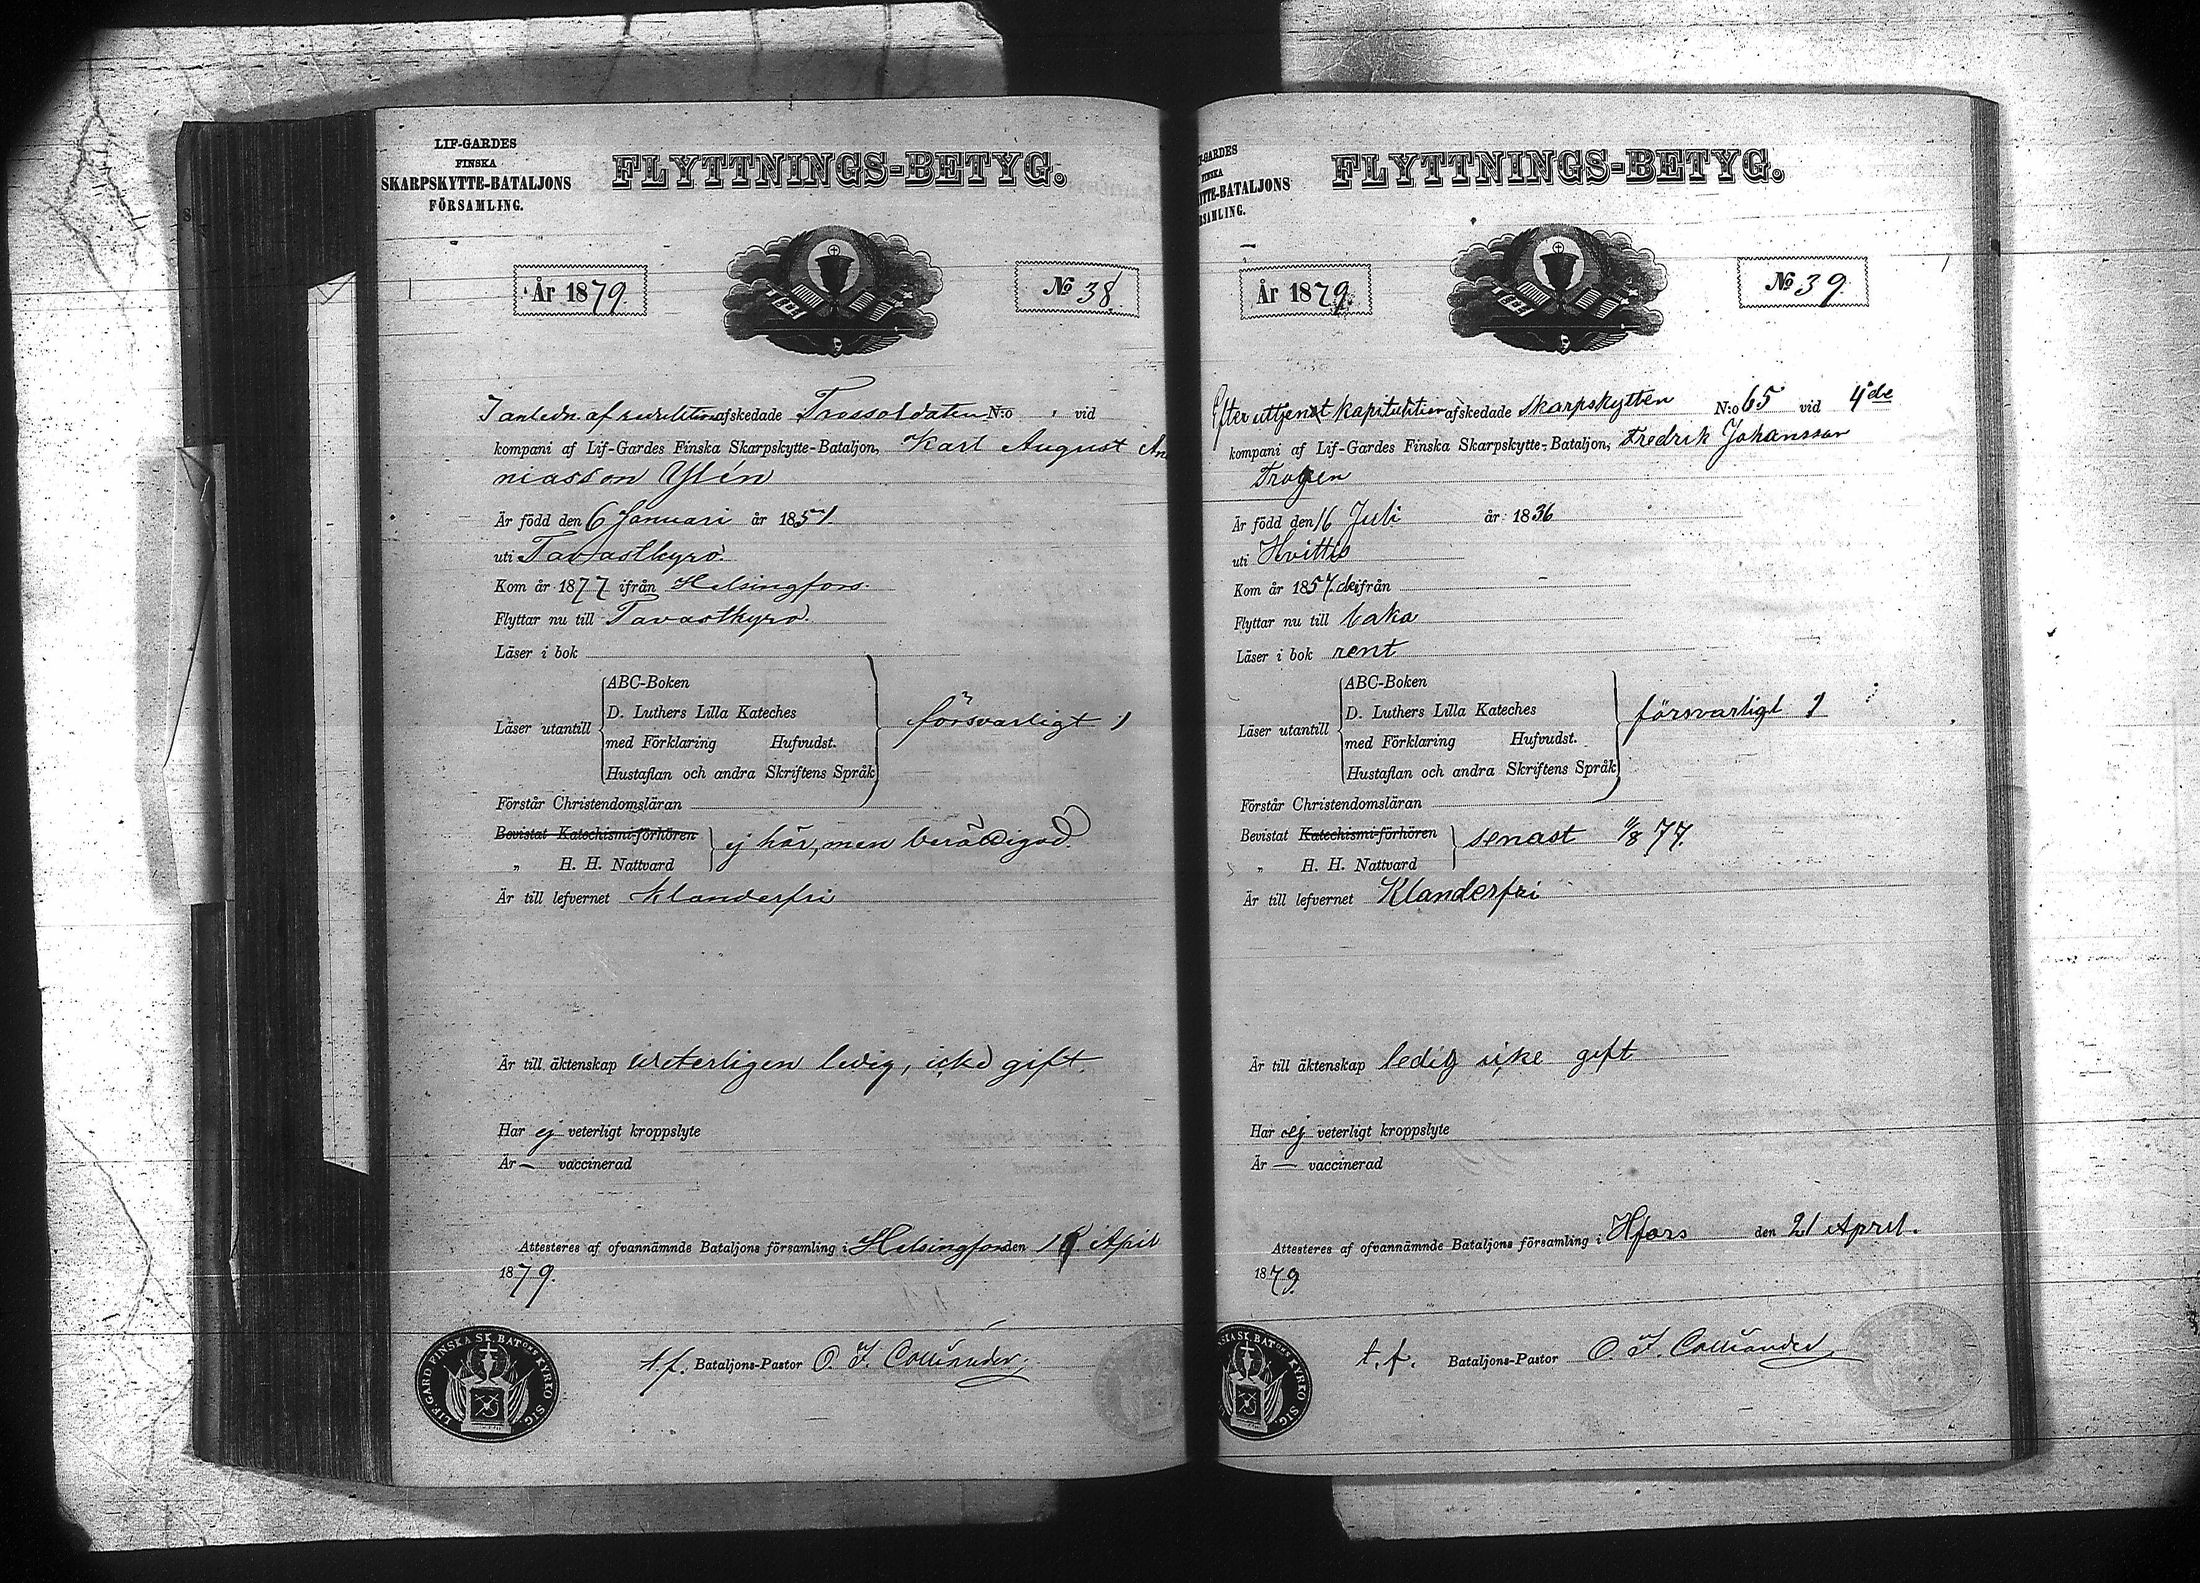 LIF-GARDES
FINSKA
SKARPSKYTTE-BATALJONS
FÖRSAMLING.
FLYTTNINGS-BETYG.
År 1879.
№ 38.
I anledn. af afskedade Trossoldaten N:o , vid
kompani af Lif-Gardes Finska Skarpskytte-Bataljon, Karl August An
niasson Ylén
Är född den 6 Januari år 1851.
uti Tavastkyro.
Kom år 1877 ifrån Helsingfors.
Flyttar nu till Tavastkyro.
Läser i bok
Läser utantill
ABC-Boken
D. Luthers Lilla Kateches
med Förklaring Hufvudst.
Hustaflan och andra Skriftens Språk
försvarligt 1
Förstår Christendomsläran
Bevistat Katechismi-förhören
„ H. H. Nattvard
ej här, men berättigad.
Är till lefvernet klanderfri
Är till äktenskap veterligen ledig, icke gift.
Har ej veterligt kroppslyte
Är — vaccinerad
Attesteres af ofvannämnde Bataljons församling i Helsingfors den April
1879.
t.f. Bataljons-Pastor O. F. Colliander.
LIF-GARD FINSKA SK. BAT:ONS KYRKO SIG.
F-GARDES
FINSKA
YTTE-BATALJONS
RSAMLING.
FLYTTNINGS-BETYG.
År 1879.
№ 39.
Efter uttjent kapitulation afskedade Skarpskytten N:o 65 vid 4de
kompani af Lif-Gardes Finska Skarpskytte-Bataljon, Fredrik Johansson
Trogen
Är född den 16 Juli år 1836
uti Hvittis
Kom år 1857. ifrån
Flyttar nu till baka
Läser i bok rent
Läser utantill
ABC-Boken
D. Luthers Lilla Kateches
med Förklaring Hufvudst.
Hustaflan och andra Skriftens Språk
försvarligt 1
Förstår Christendomsläran
Bevistat Katechismi-förhören
„ H. H. Nattvard
senast 11/8 77.
Är till lefvernet Klanderfri
Är till äktenskap ledig icke gift
Har ej veterligt kroppslyte
Är — vaccinerad
Attesteres af ofvannämnde Bataljons församling i Hfors den 21 April.
1879.
t.f. Bataljons-Pastor O F. Colliander
SKA SK. BAT:ONS KYRKO SIG.